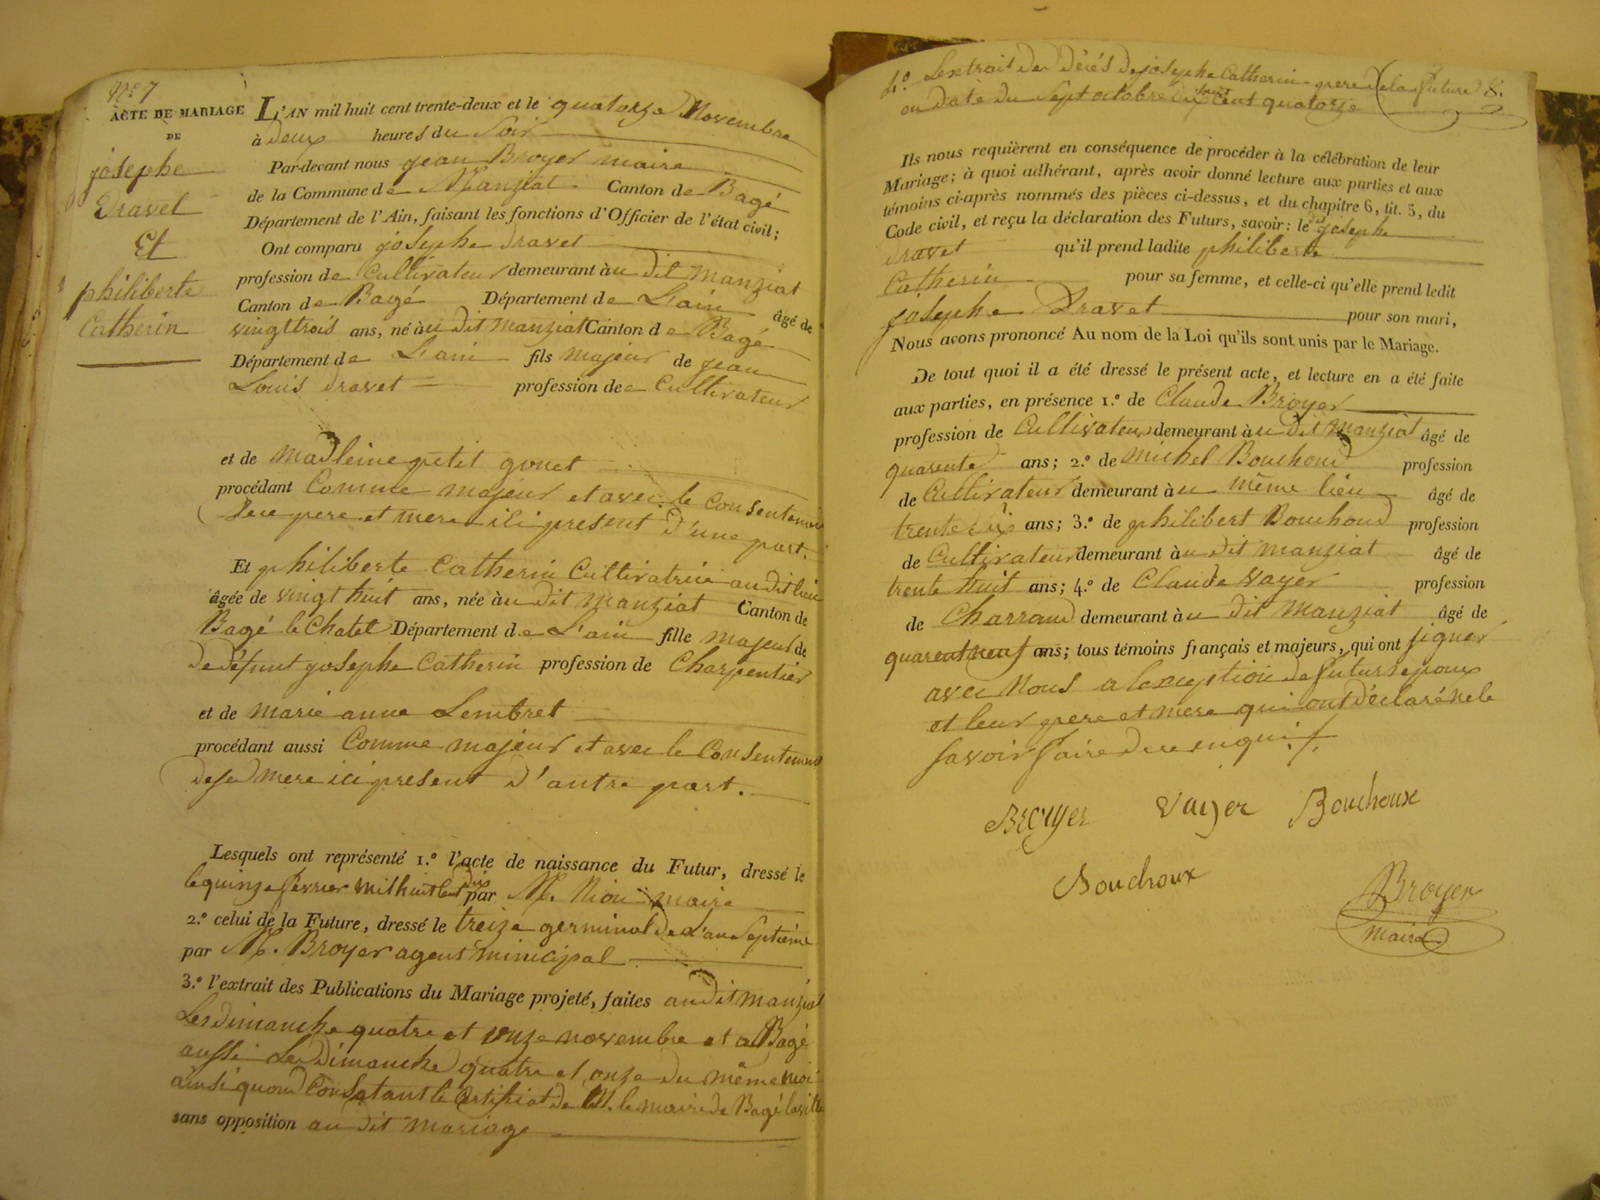 N.° 7
ACTE DE MARIAGE
DE
josephe
Dravet
Et
philiberte
Catherin
L'AN mil huit cent trente-deux et le quatorze Novembre
à deux heures du Soir
Par-devant nous jean Broyer maire
de la Commune de Manziat Canton de Bagé
Département de l'Ain, faisant les fonctions d'Officier de l'état civil;
Ont comparu josephe Dravet
profession de Cultivateur demeurant à u dit Manziat
Canton de Bagé Département de L'ain âgé de
vingt trois ans, né à u dit Manziat Canton de Bagé
Département de L'ain fils majeur de jean
Louis Dravet profession de Cultivateur
et de Madleine petit gonet
procédant Comme majeur et avec le Consentement
pere et mere ici present d'une part.
Et philiberte Catherin Cultivatrice au dit lieu
âgée de vingt huit ans, née à u dit Manziat Canton de
Bagé le Chatel Département de L'ain fille majeur de
de défunt josephe Catherin profession de Charpentier
et de marie anne Lembret
procédant aussi Comme majeur et avec le Consentement
de sa mere ici present d'autre part.
Lesquels ont représenté 1.° l'acte de naissance du Futur, dressé le
le quinze fevrier mil huit Cent dix par M. Niou maire
2.° celui de la Future, dressé le treize germinal de L'an Septième
par M. Broyer agent municipal
3.° l'extrait des Publications du Mariage projeté, faites au dit Manziat
Les dimanche quatre et onze novembre et a Bagé
aussi Les dimanche quatre et onze du même moi
ainsi quon Constatant le Certificat de M. le maire de Bagé la ville
sans opposition au dit mariage
4.° Lextrait de Décés de josephe Catherin pere de la future
en date du Sept octobre dix huit Cent quatorze
Ils nous requièrent en conséquence de procéder à la célébration de leur
Mariage; à quoi adhérant, après avoir donné lecture aux parties et aux
témoins ci-après nommés des pièces ci-dessus, et du chapitre 6, tit. 5, du
Code civil, et reçu la déclaration des Futurs, savoir: le dit josephe
Dravet qu'il prend ladite philiberte
Catherin pour sa femme, et celle-ci qu'elle prend ledit
josephe Dravet pour son mari,
Nous avons prononcé Au nom de la Loi qu'ils sont unis par le Mariage.
De tout quoi il a été dressé le présent acte, et lecture en a été faite
aux parties, en présence 1.° de Claude Broyer
profession de Cultivateur demeurant à u dit Manziat âgé de
quarente ans; 2.° de Michel Bouchoud profession
de Cultivateur demeurant à u même lieu âgé de
trente six ans; 3.° de philibert Bouchoud profession
de Cultivateur demeurant à u dit Manziat âgé de
trente huit ans; 4.° de Claude Vayer profession
de Charron demeurant à u dit Manziat âgé de
quarent neuf ans; tous témoins français et majeurs, qui ont signer
avec Nous a l'exception de futurs epoux
et leur pere et mere qui ont déclaré ne le
savoir faire de ce enquis.
Broyer Vayer Bouchoux
Bouchoux
Broyer
maire